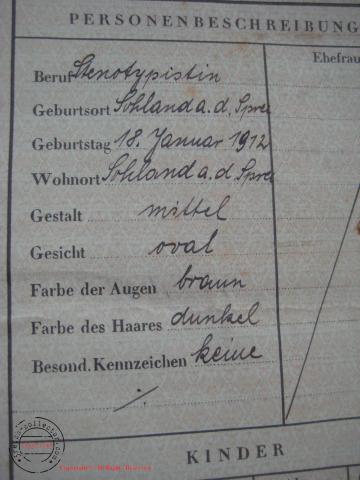 PERSONENBESCHREIBUNG
Ehefrau
Beruf Stenotypistin
Geburtsort Sohland a. d. Spree
Geburtstag 18. Januar 1912
Wohnort Sohland a. d. Spree
Gestalt mittel
Gesicht oval
Farbe der Augen braun
Farbe des Haares dunkel
Besond. Kennzeichen keine
KINDER